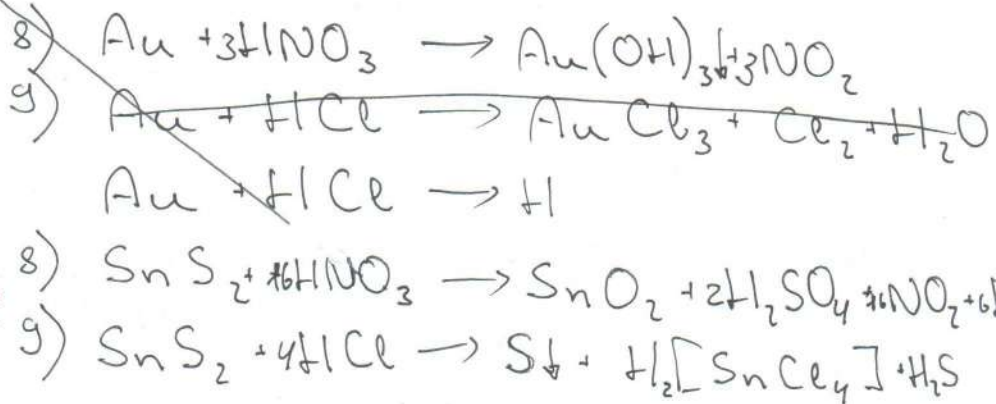 8) Au + 3HNO₃ → Au(OH)₃↓ + 3NO₂
9) Au + HCl → AuCl₃ + Cl₂ + H₂O
Au + HCl → H
8) SnS₂ + 16HNO₃ → SnO₂ + 2H₂SO₄ + 16NO₂ + 6
9) SnS₂ + 4HCl → S↓ + H₂[SnCl₄] + H₂S